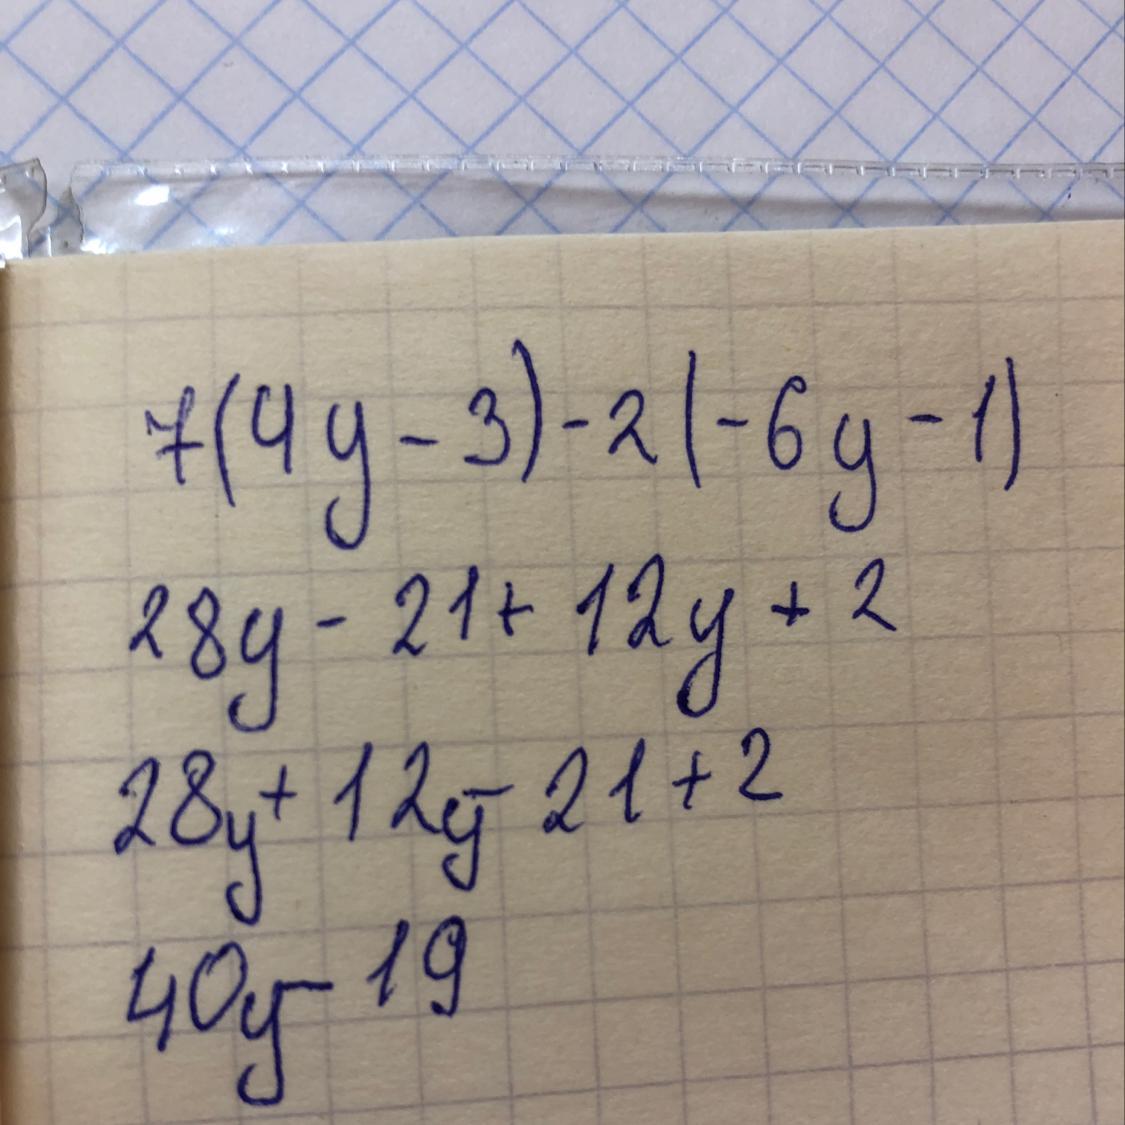 7(4y - 3) - 2(-6y - 1)
28y - 21 + 12y + 2
28y + 12y - 21 + 2
40y - 19